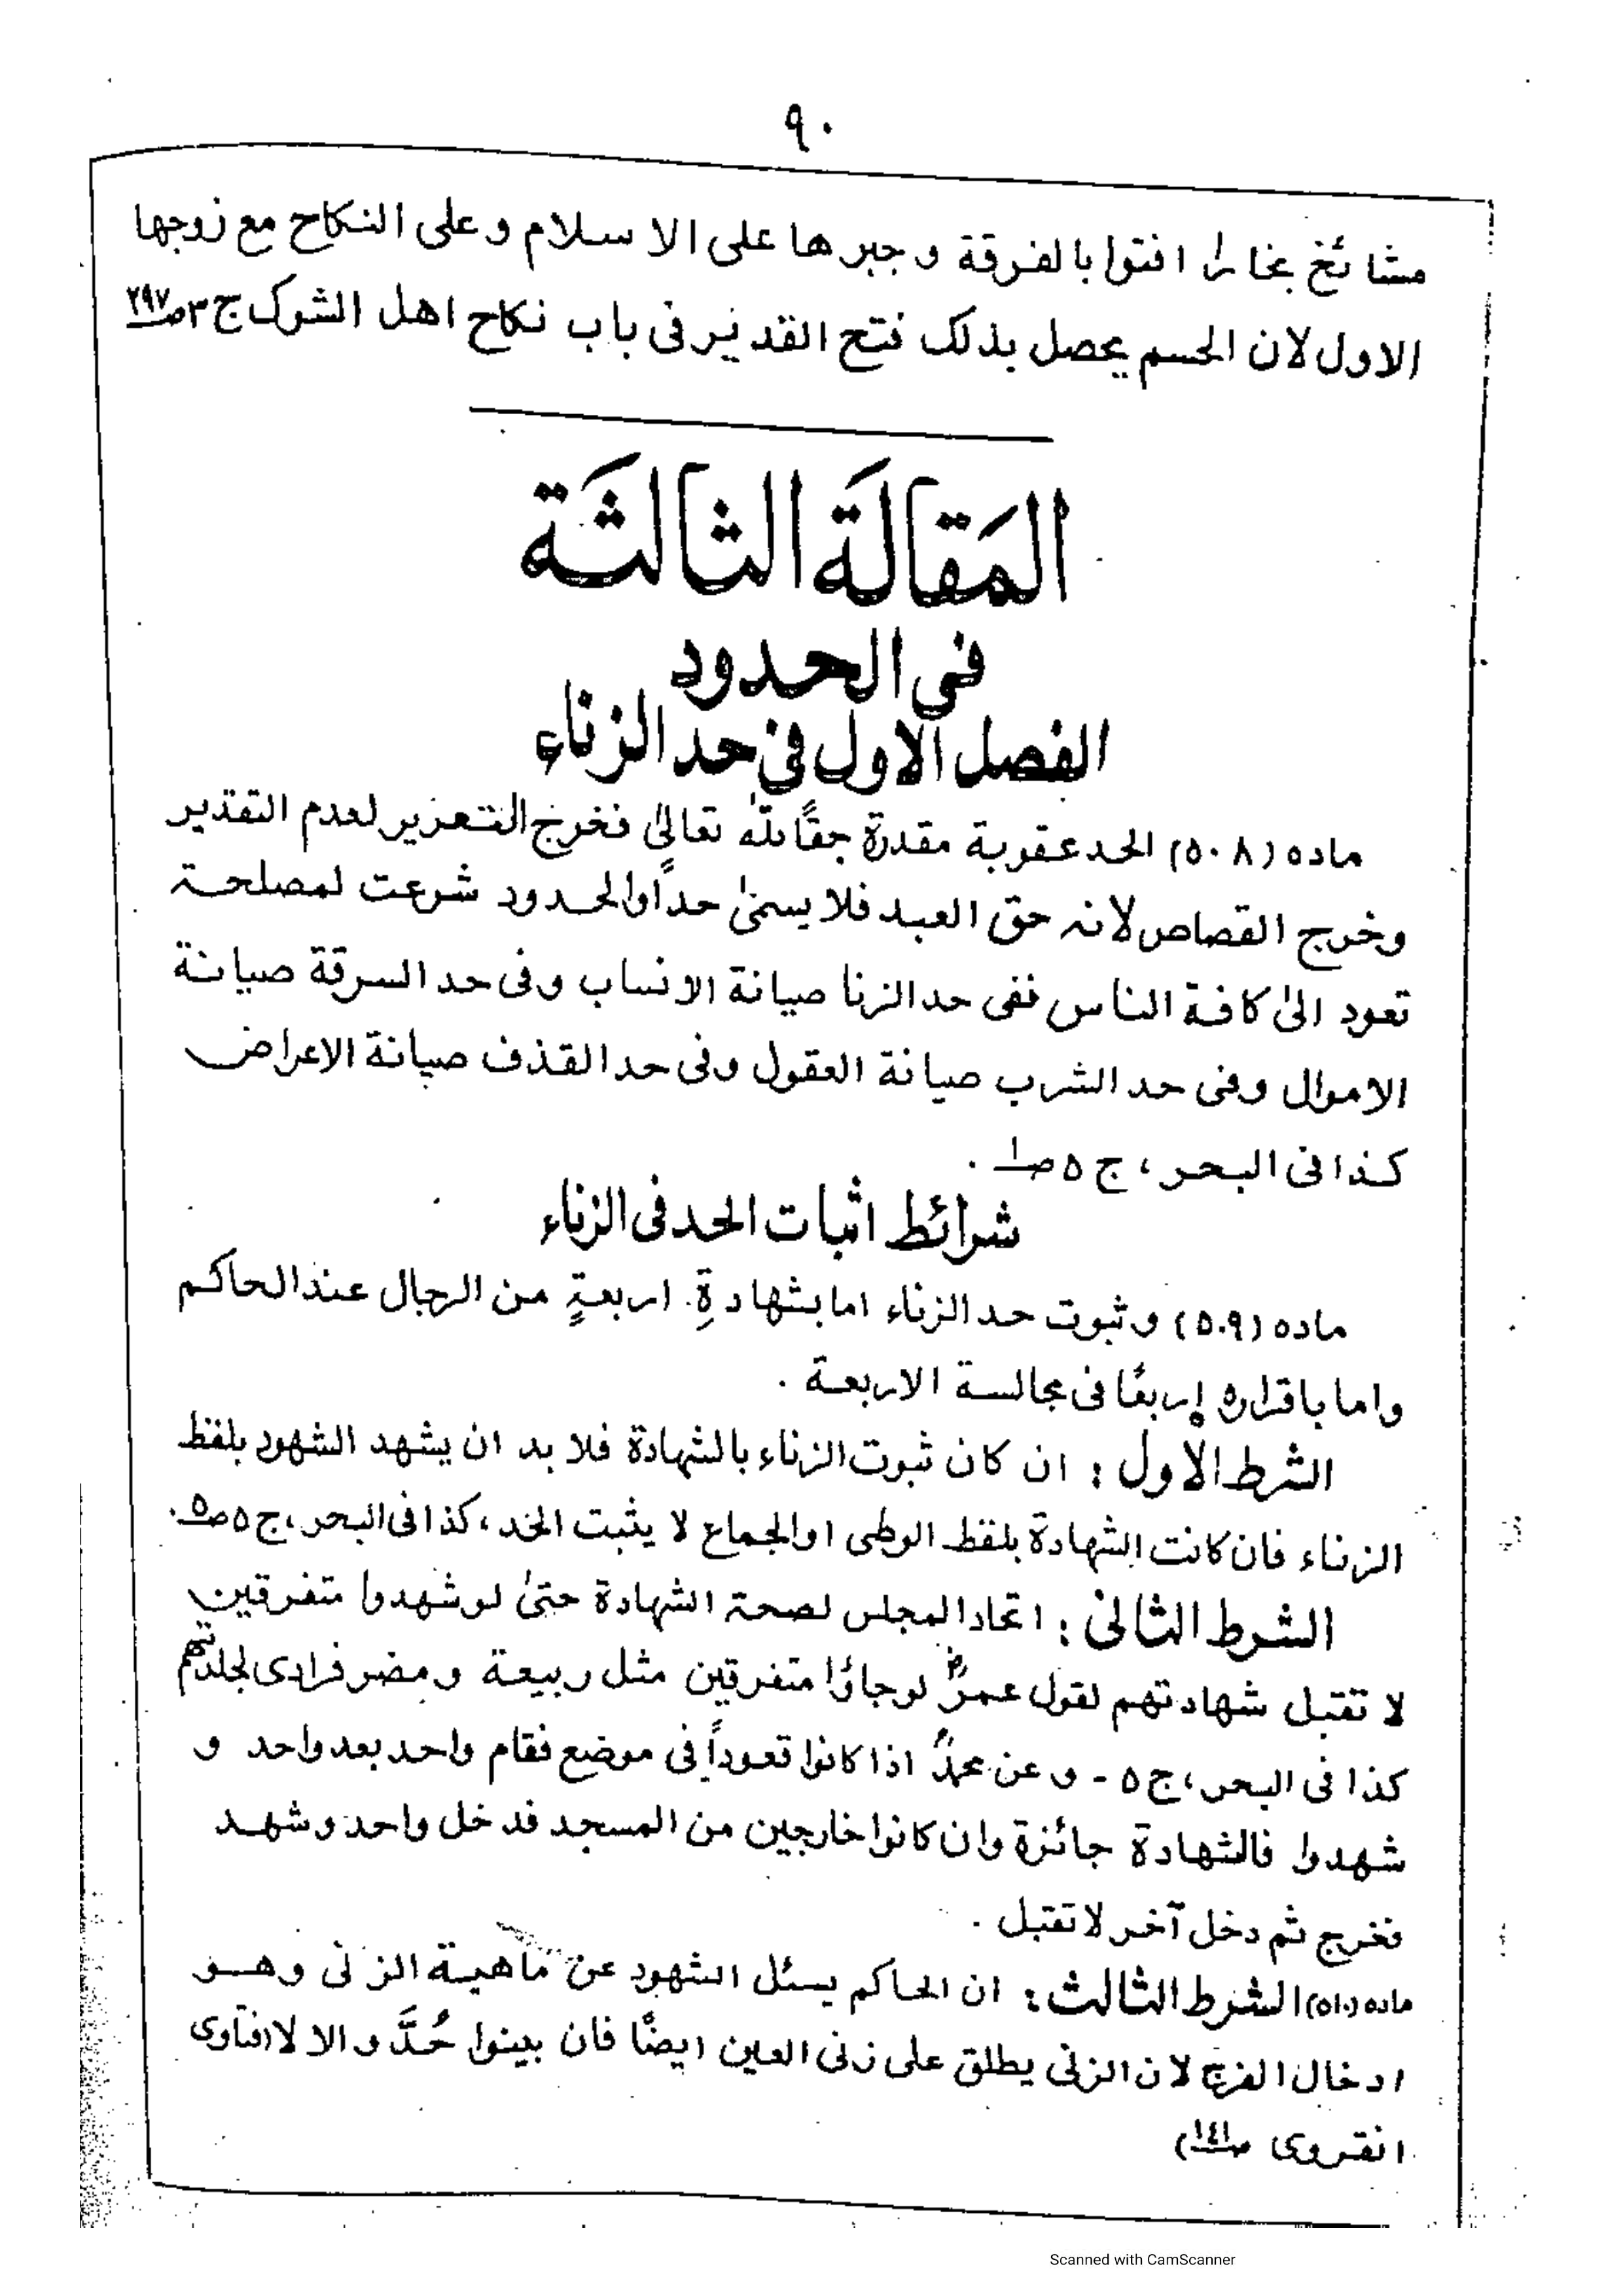 ٩٠
مشائخ بخارا افتوا بالفرقة وجبرها على الاسلام وعلى النكاح مع زوجها
الاول لان الحسم يحصل بذلك فتح القدير فى باب نكاح اهل الشرك ج ٣ ص ٢٩٧
المَقَالَة الثَالثَة
فى الحدود
الفصل الاول فى حد الزناء
ماده (٥٠٨) الحد عقوبة مقدرة حقًا لله تعالىٰ فخرج التعزير لعدم التقدير
وخرج القصاص لانہ حق العبد فلا يسمىٰ حدًا والحدود شرعت لمصلحة
تعود الىٰ كافة الناس ففى حد الزنا صيانة الانساب وفى حد السرقة صيانة
الاموال وفى حد الشرب صيانة العقول وفى حد القذف صيانة الاعراض
كذا فى البحر، ج ٥ ص ١ .
شرائط اثبات الحد فى الزناء
ماده (٥٠٩) وثبوت حد الزناء اما بشهادةِ اربعةٍ من الرجال عند الحاكم
واما باقراره اربعًا فى مجالسة الاربعة .
الشرط الاول : ان كان ثبوت الزناء بالشهادة فلا بد ان يشهد الشهود بلفظ
الزناء فان كانت الشهادة بلفظ الوطى او الجماع لا يثبت الحد، كذا فى البحر، ج ٥ ص ٥ .
الشرط الثانى : اتحاد المجلس لصحة الشهادة حتىٰ لو شهدوا متفرقين
لا تقبل شهادتهم لقول عمرؓ لو جاؤا متفرقين مثل ربيعة ومضر فرادى لجلدتهم
كذا فى البحر، ج ٥ - وعن محمدؒ اذا كانوا قعوداً فى موضع فقام واحد بعد واحد و
شهدوا فالشهادة جائزة وان كانوا خارجين من المسجد فدخل واحد وشهد
فخرج ثم دخل آخر لا تقبل .
ماده (٥١٠) الشرط الثالث : ان الحاكم يسئل الشهود عن ماهية الزنى وهو
ادخال الفرج لان الزنى يطلق على زنى العين ايضًا فان بينوا حُدَّ والا لا (فتاوى
انقروى ص ١٤١)
Scanned with CamScanner